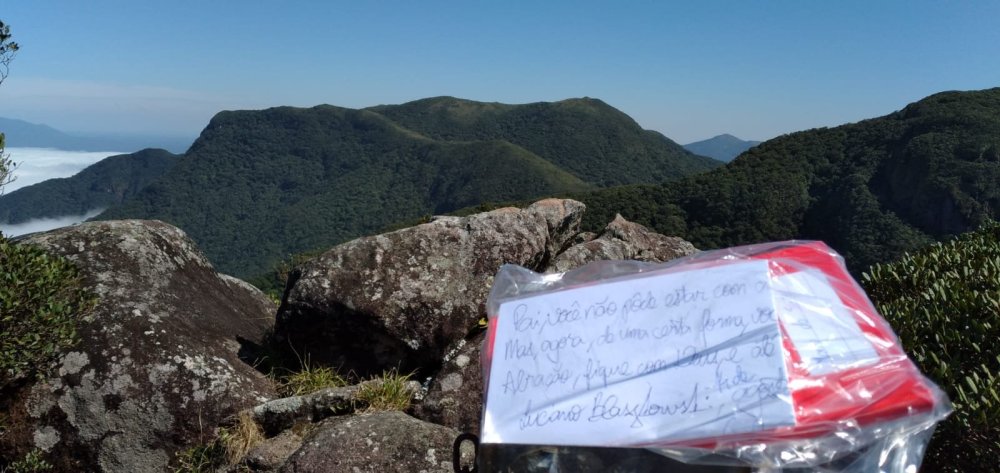 Pai, você não pôde estar com a
Mas, agora, de uma certa forma, vo
Abração, fique com Deus, e até
Luciano Blaszkowski,